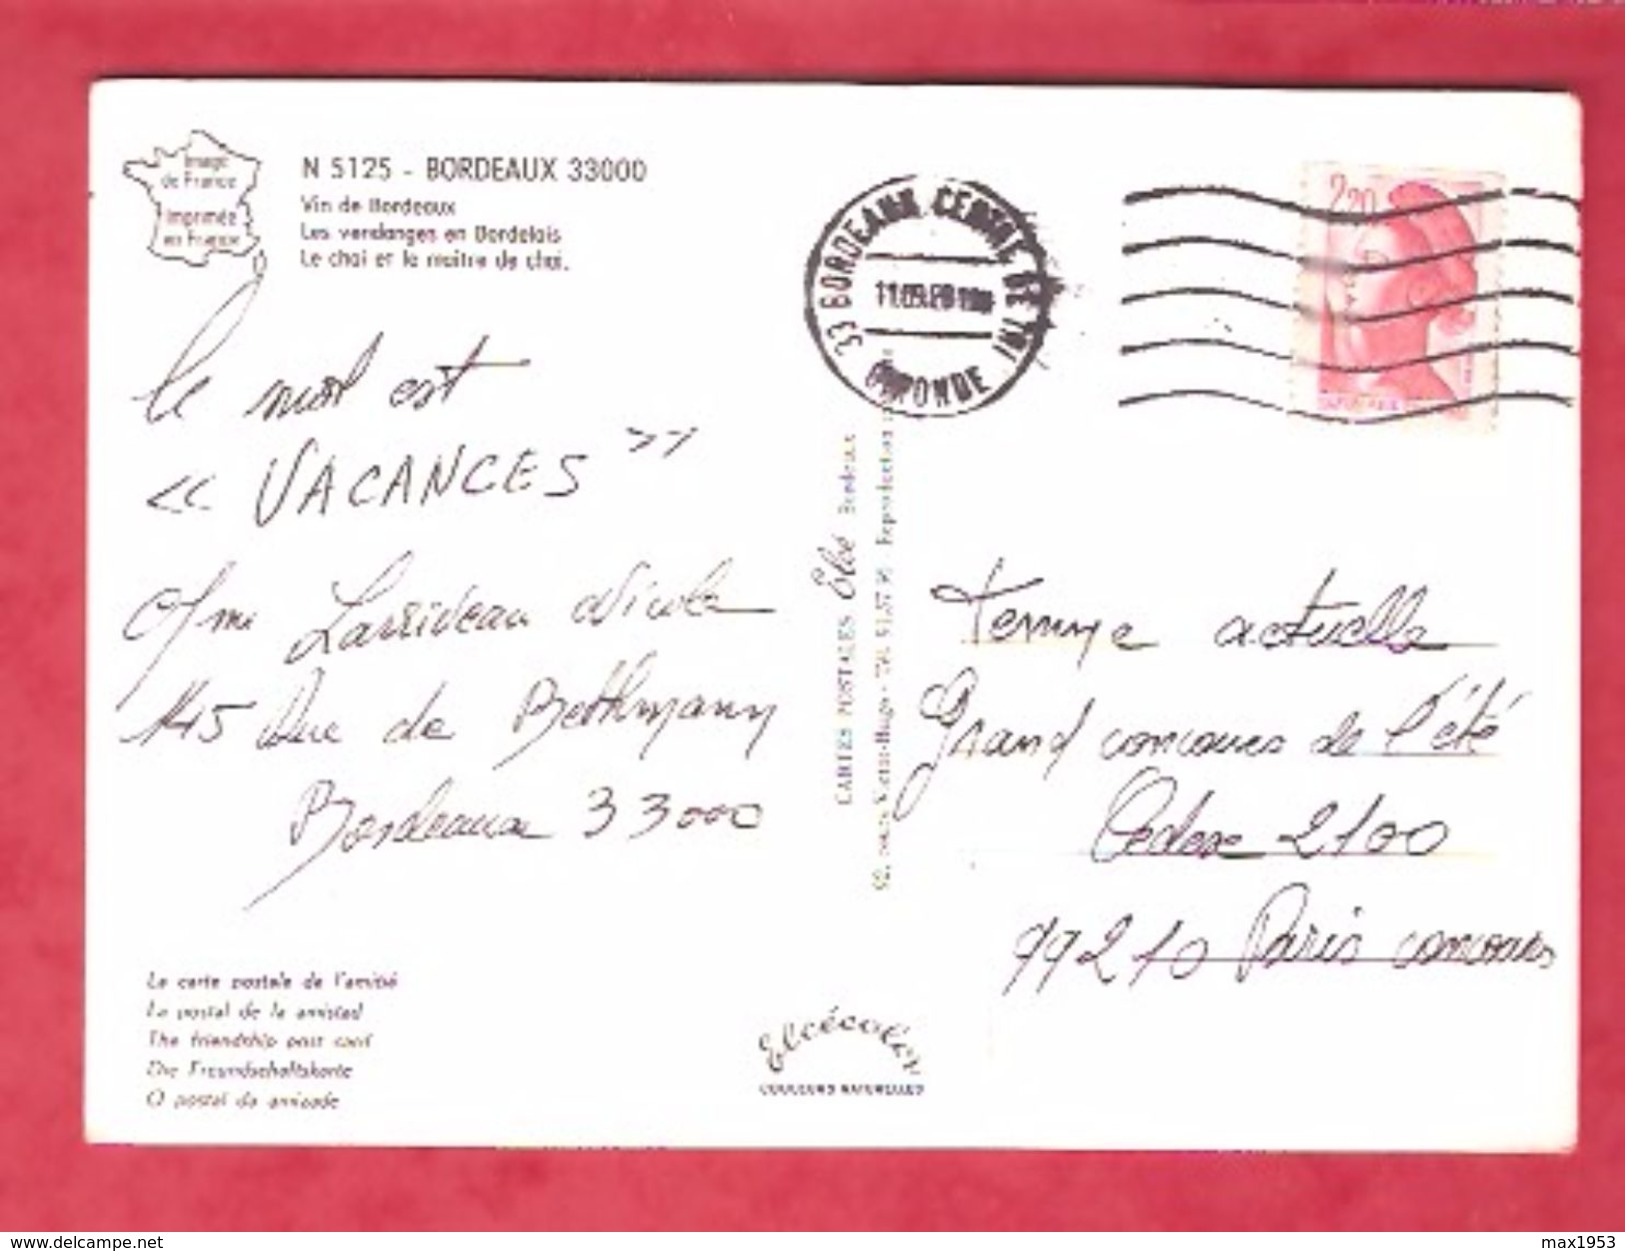 Image
de France
Imprimée
en France
N 5125 - BORDEAUX 33000
Vin de Bordeaux
Les vendanges en Bordelais
Le chai et le maître de chai.
33 BORDEAUX CENTRE DE TRI
GIRONDE
2,20
le mot est
« VACANCES »
Larriveau Nicole
145 Rue de Bethmann
Bordeaux 33000
CARTES POSTALES Elcé Bordeaux
Femme actuelle
Grand concours de l'été
Cedex 2100
99210 Paris concours
La carte postale de l'amitié
La postal de la amistad
The friendship post card
Die Freundschaftskarte
O postal da amizade
Elcécolor
COULEURS NATURELLES
www.delcampe.net
max1953